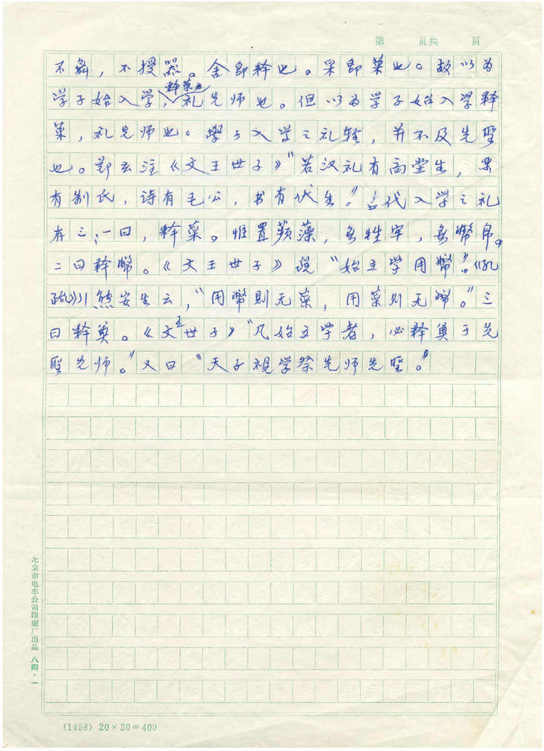 第 頁共 頁
不舞，不授器。舍即释也。采即菜也。故以为
学子始入学，释菜也礼先师也。但以为学子始入学释
菜，礼先师也。学子入学之礼轻，并不及先聖
也。郑玄注《文王世子》“若汉礼有高堂生，乐
有制氏，诗有毛公，书有伏生。”古代入学之礼
有三：一曰，释菜。惟置蘋藻，无牲牢，无幣帛。
二曰释幣。《文王世子》疏“始立学用幣”。《礼
疏》引熊安生云，“用幣則无菜，用菜则无幣。”三
曰释奠。《文王世子》“凡始立学者，必释奠于先
聖先师。”又曰“天子視学祭先师先聖。”
北京市电车公司印刷厂出品 八四·一
(1488) 20×20=400